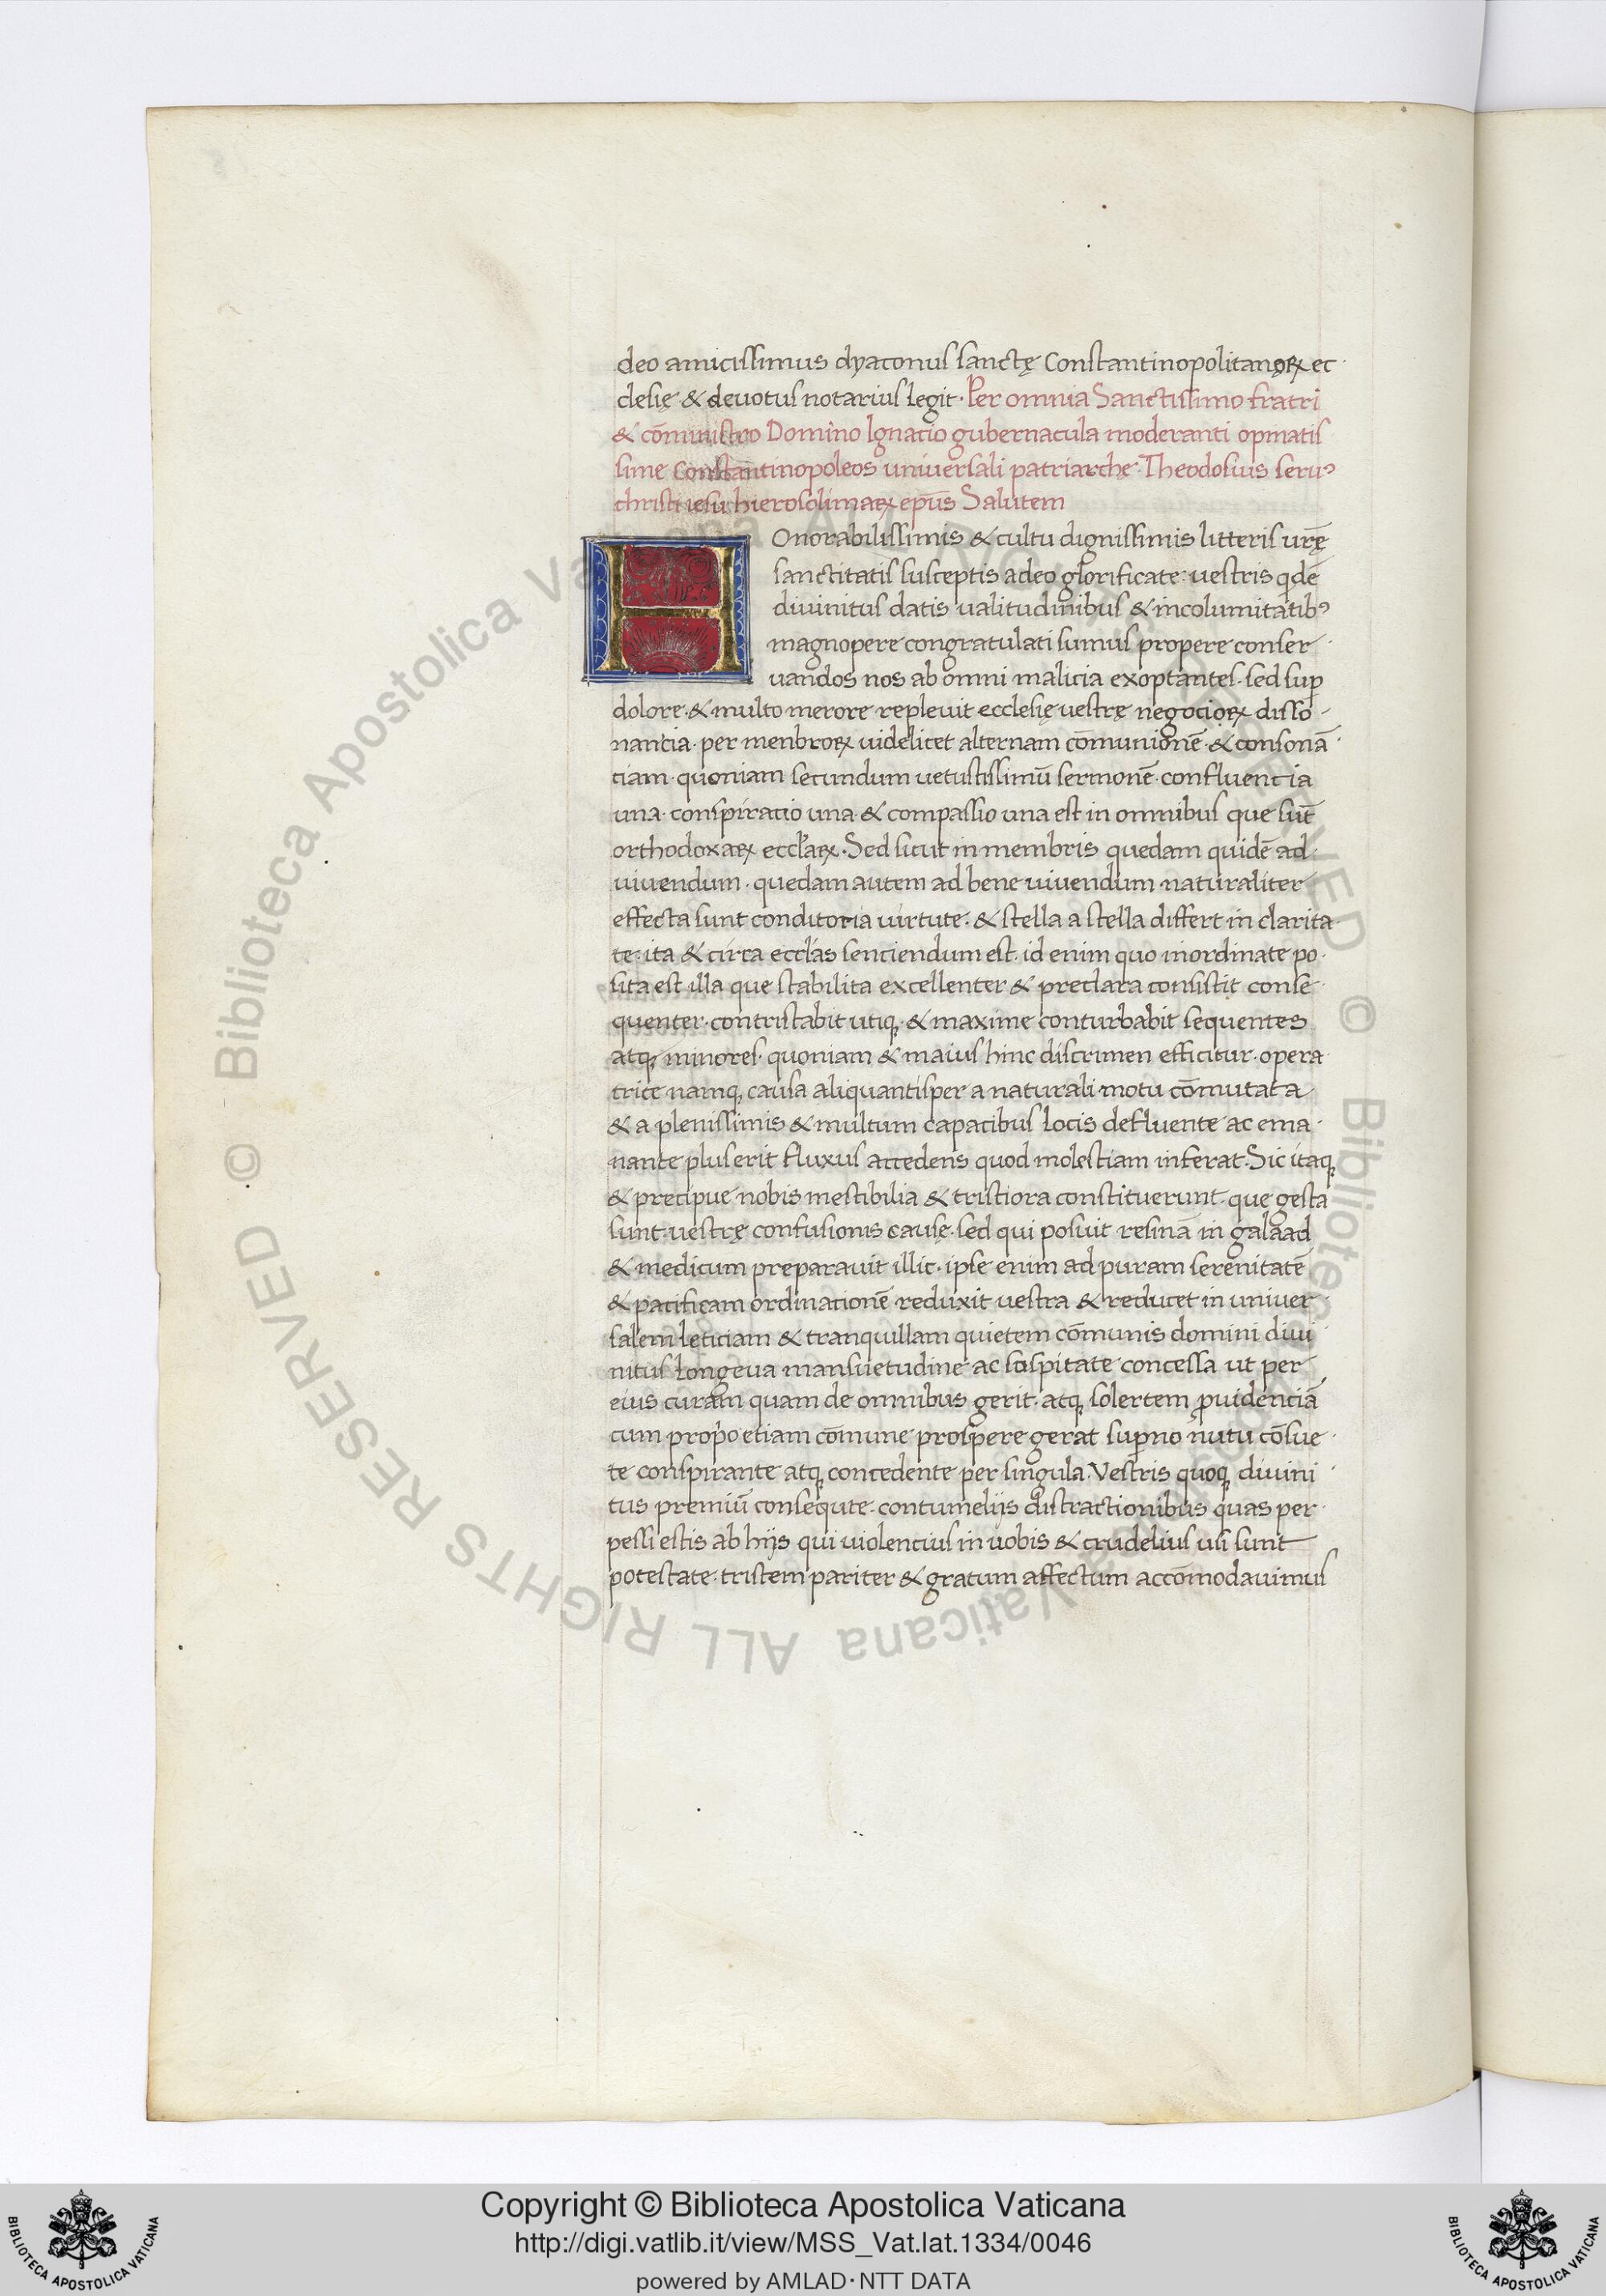 deo amicissimus dyaconus sanctę Constantinopolitanoꝝ ec
clesię & deuotus notarius legit · Per omnia Sanctissimo fratri
& cōministro Domino Ignatio gubernacula moderanti opinatis
sime Constantinopoleos universali patriarche · Theodosius seruꝰ
christi iesu hierosolimaꝝ ep̄us Salutem
HOnorabilissimis & cultu dignissimis litteris ur̄ę
sanctitatis susceptis a deo glorificate · uestris qdē
divinitus datis ualitudinibus & incolumitatibꝰ
magnopere congratulati sumus propere conser
uandos nos ab omni malicia exoptantes · sed sup̱
dolore · & multo merore replevit ecclesię uestrę negocioꝝ disso
nancia · per menbroꝝ uidelicet alternam cōmunionē · & consonā
ciam · quoniam secundum uetustissimū sermonē · confluencia
una · conspiracio una · & compassio una est in omnibus que sūt
orthodoxaꝝ eccl'aꝝ · Sed sicut in membris quedam quidē ad
uiuendum · quedam autem ad bene uiuendum naturaliter
effecta sunt conditoria uirtute · & stella a stella differt in clarita
te · ita & circa eccl'as senciendum est · id enim quo inordinate po
sita est illa que stabilita excellenter & preclara consistit conse
quenter · contristabit utiqꝫ · & maxime conturbabit sequentes
atqꝫ minores · quoniam & maius hinc discrimen efficitur · opera
trice namqꝫ causa aliquantisper a naturali motu cōmutata
& a plenissimis & multum capacibus locis defluente ac ema
nante plus erit fluxus accedens quod molestiam inferat · Sic itaqꝫ
& precipue nobis mestibilia & tristiora constituerunt · que gesta
sunt · uestrę confusionis cause · sed qui posuit resinā in galaad
& medicum preparavit illic · ipse enim ad puram serenitatē
& pacificam ordinacionē reduxit uestra & reducet in univer
salem leticiam & tranquillam quietem cōmunis domini divi
nitus longeva mansuetudine ac sospitate concessa ut per
eius curam quam de omnibus gerit · atqꝫ solertem ꝓuidenciā
cum prop̱o etiam cōmune prospere gerat sup̱no nutu cōsue
te conspirante atqꝫ concedente per singula · Vestris quoqꝫ divini
tus premiū consequte · contumelijs distractionibus quas per
pessi estis ab hijs qui uiolencius in uobis & crudelius usi sunt
potestate · tristem pariter & gratum affectum accōmodavimus
Copyright © Biblioteca Apostolica Vaticana
http://digi.vatlib.it/view/MSS_Vat.lat.1334/0046
powered by AMLAD·NTT DATA
BIBLIOTECA APOSTOLICA VATICANA
BIBLIOTECA APOSTOLICA VATICANA
© Biblioteca Apostolica Vaticana ALL RIGHTS RESERVED © Biblioteca Apostolica Vaticana ALL RIGHTS RESERVED